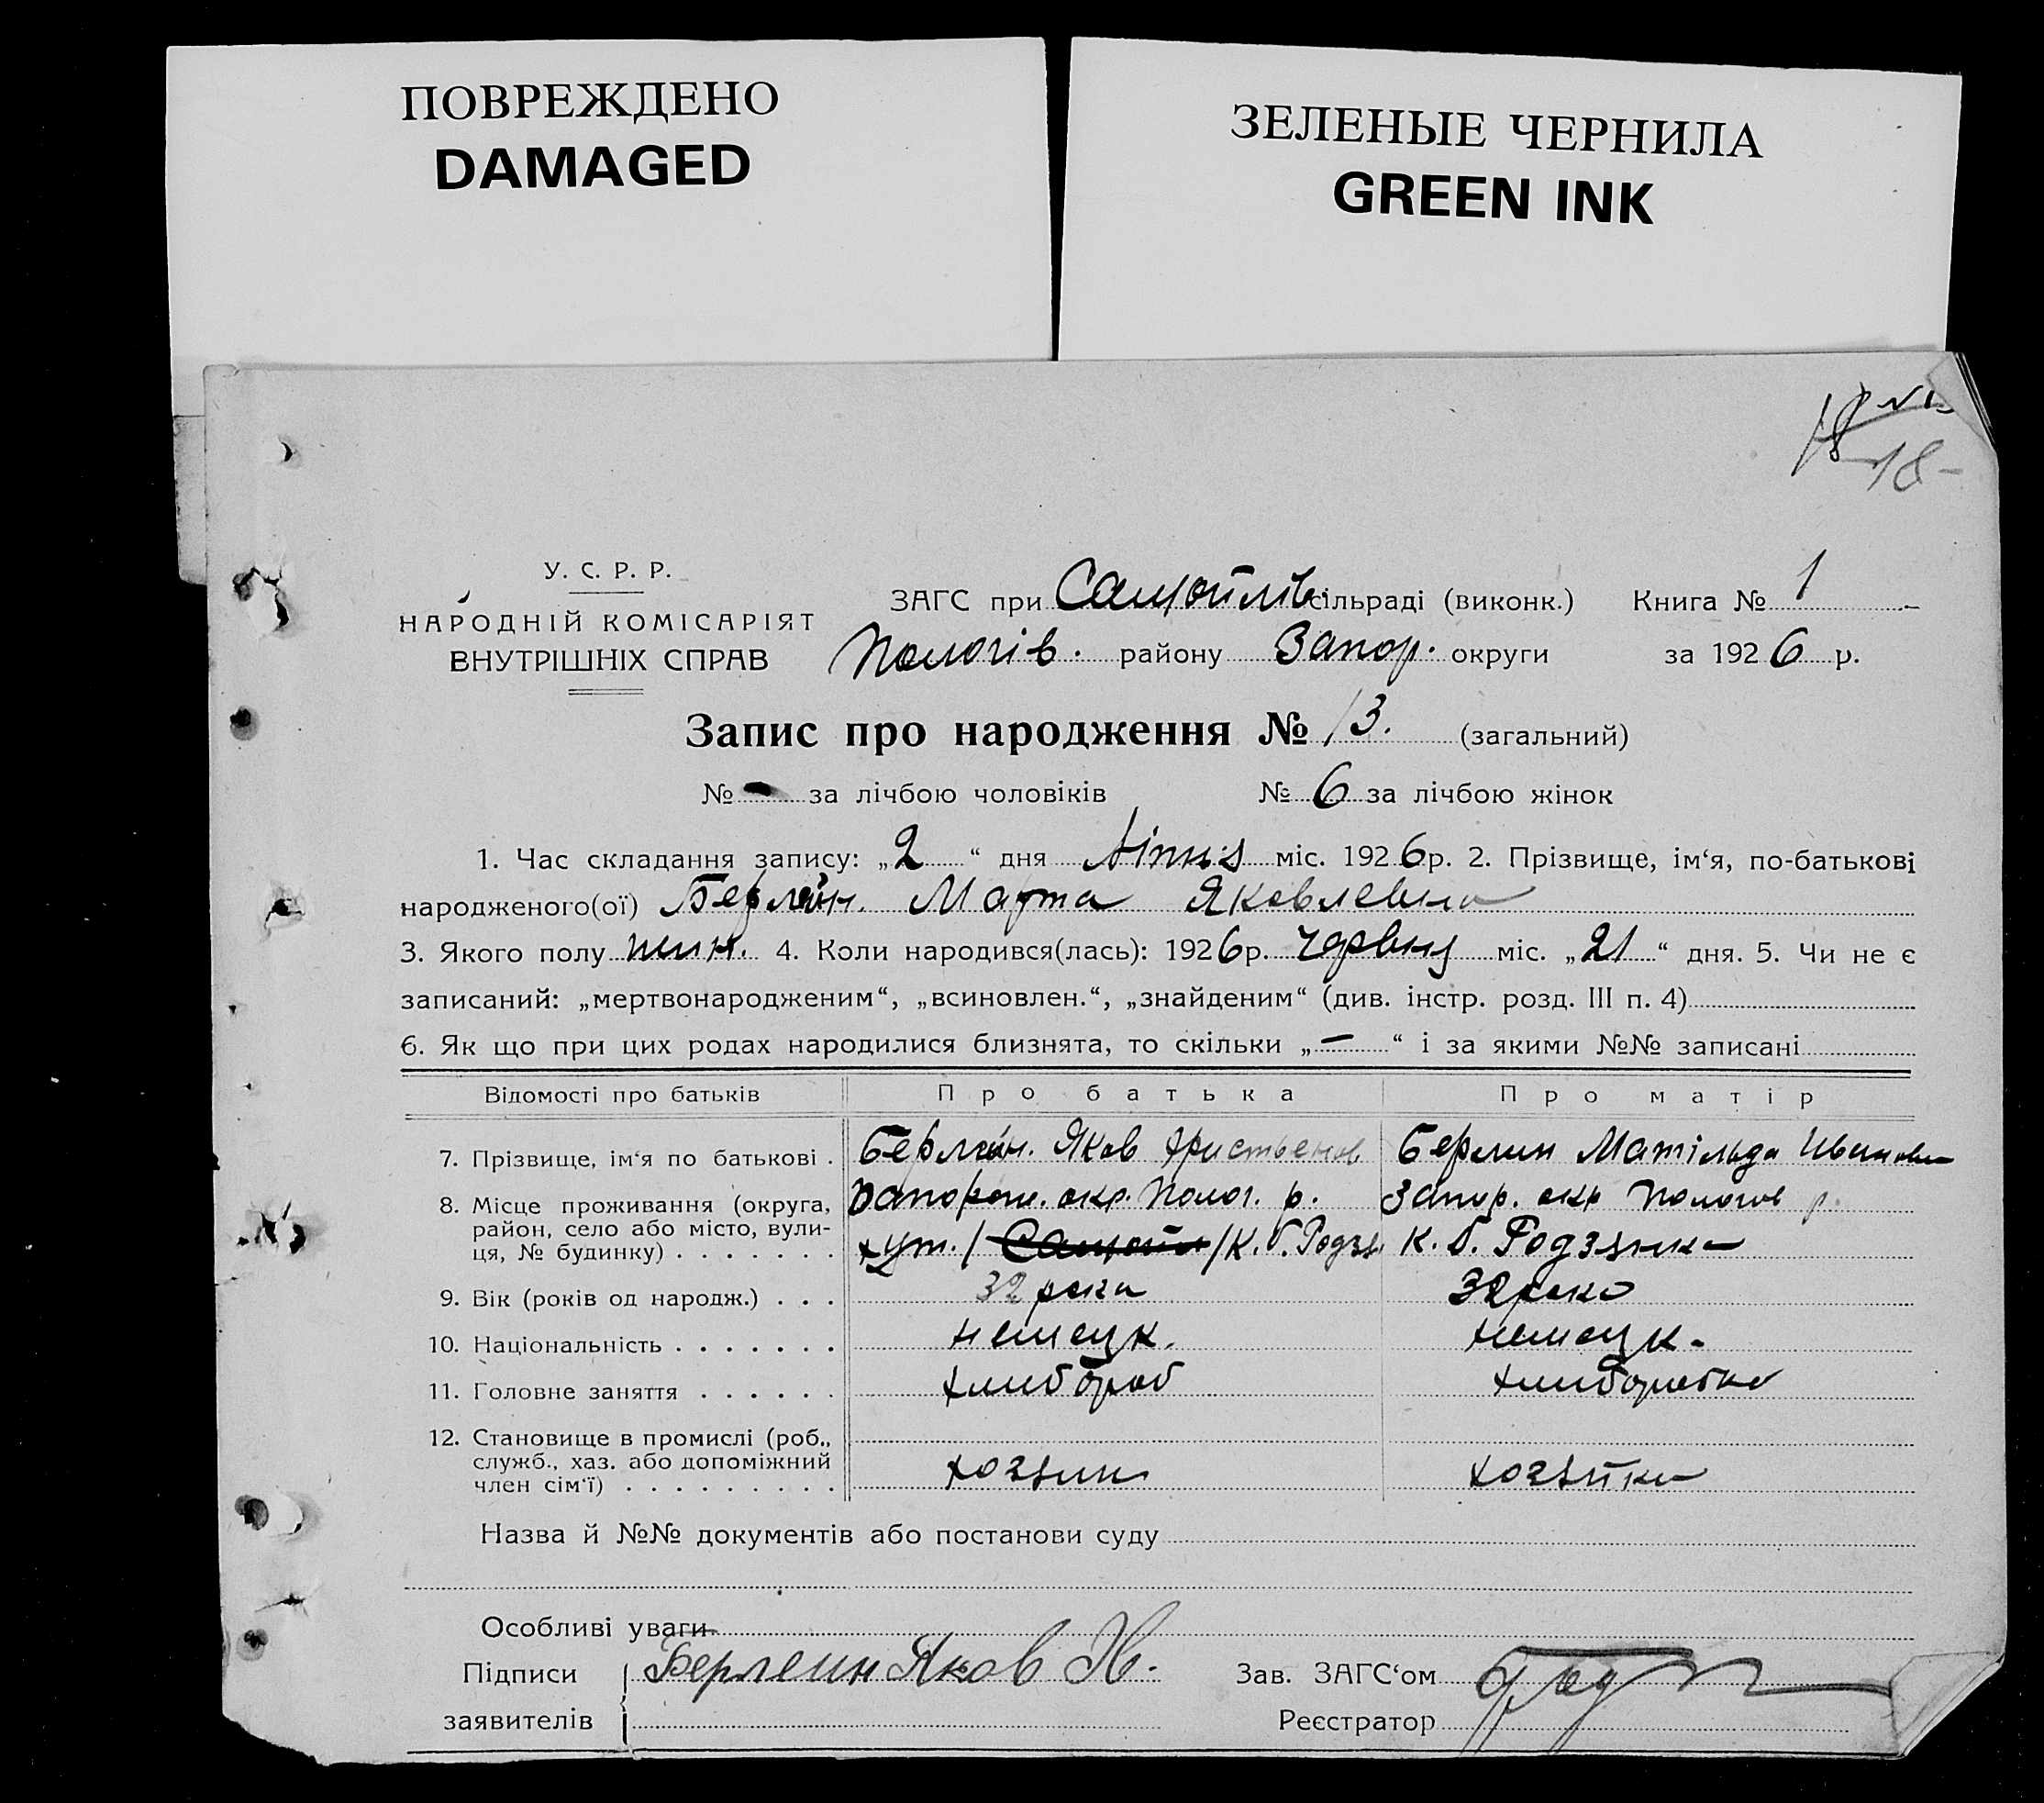 ПОВРЕЖДЕНО
DAMAGED
ЗЕЛЕНЫЕ ЧЕРНИЛА
GREEN INK
18-
У. С. Р. Р.
НАРОДНІЙ КОМІСАРІЯТ
ВНУТРІШНІХ СПРАВ
ЗАГС при Самойлів. сільраді (виконк.) Книга № 1
Пологів. району Запор. округи за 1926 р.
Запис про народження № 13. (загальний)
№ - за лічбою чоловіків № 6 за лічбою жінок
1. Час складання запису: „2“ дня Липня міс. 1926 р. 2. Прізвище, ім‘я, по-батькові
народженого(ої) Берлейн. Марта Яковлевна
3. Якого полу жін. 4. Коли народився(лась): 1926 р. червня міс. „21“ дня. 5. Чи не є
записаний: „мертвонародженим“, „всиновлен.“, „знайденим“ (див. інстр. розд. III п. 4)
6. Як що при цих родах народилися близнята, то скільки „—“ і за якими №№ записані
Відомості про батьків Про батька Про матір
7. Прізвище, ім‘я по батькові . Берлейн. Яков Христьенов Берлин Матільда Ивановна
8. Місце проживання (округа, район, село або місто, вулиця, № будинку) . . . . . . . Запорож. окр. Полог. р. Запор. окр Пологов р.
хут. / /К. б. Родзя. К. б. Родзянка
9. Вік (років од народж.) . . . 32 роки 32 роки
10. Національність . . . . . . . немецк. немецк.
11. Головне заняття . . . . . . хлибороб хлиборобка
12. Становище в промислі (роб., служб., хаз. або допоміжний член сім‘ї) . . . . . . . . . хозяин хозяйка
Назва й №№ документів або постанови суду
Особливі уваги
Підписи заявителів Берлеин Яков Х.
Зав. ЗАГС‘ом
Реєстратор